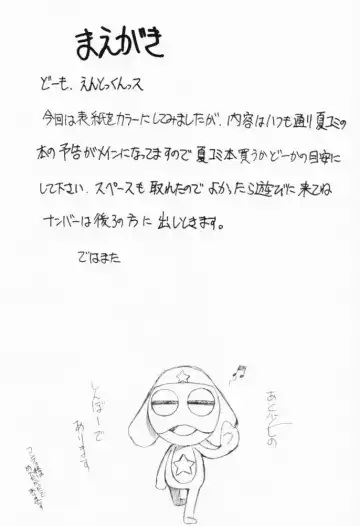 まえがき
どーも、えんどっくんっス
今回は表紙をカラーにしてみましたが、内容はいつも通り夏コミの
本の予告がメインになってますので夏コミ本買うかどーかの目安に
して下さい、スペースも取れたのでよかったら遊びに来てね
ナンバーは後ろの方に出しときます。
ではまた
あと少しの
しんぼーで
あります